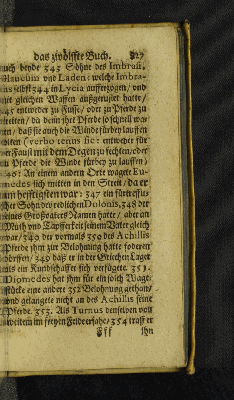 das zwölffte Buch. 827
auch beyde 343 Söhne des Imbrasi,
Glaucum und Laden: welche Imbra-
sus selbst 344 in Lycia aufferzogen/ und
mit gleichen Waffen außgerüstet hatte/
345 entweder zu Fusse/ oder zu Pferde zu
streiten/ da denn ihre Pferde so schnell wa-
ren/ daß sie auch die Winde fürbey lauffen
(verbo tenus sic: entweder für
der Faust mit dem Degen zu fechten/ oder
zu Pferde die Winde fürbey zu lauffen)
346: In einem andern Orte wagte Eu-
medes sich mitten in den Streit/ da er
am hefftigsten war: 347 ein fürtreffli-
cher Sohn des redlichen Dolonis, 348 der
seines Großvaters Namen hatte/ aber an
Muth und Tapfferkeit seinem Vater gleich
war/ 349 der vormals 350 des Achillis
Pferde ihm zur Belohnung hatte fodern
dörffen/ 349 daß er in der Griechen Lager
als ein Kundschaffer sich verfügete. 351.
Diomedes hat ihm für ein solch Wage-
stücke eine andere 352 Belohnung gethan/
und gelangete nicht an des Achillis seine
Pferde. 353. Als Turnus denselben von
weitem im freyen Felde ersahe/ 354 traff er
Fff ihn